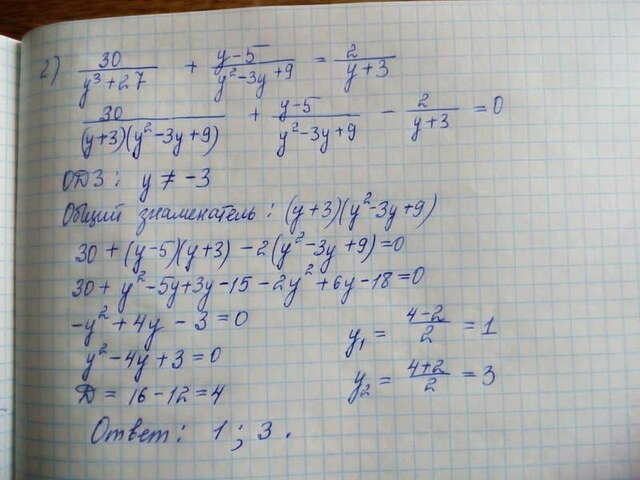 2) 30/(y³+27) + (y-5)/(y²-3y+9) = 2/(y+3)
30/((y+3)(y²-3y+9)) + (y-5)/(y²-3y+9) - 2/(y+3) = 0
ОДЗ: y ≠ -3
Общий знаменатель: (y+3)(y²-3y+9)
30 + (y-5)(y+3) - 2(y²-3y+9) = 0
30 + y² - 5y + 3y - 15 - 2y² + 6y - 18 = 0
-y² + 4y - 3 = 0
y² - 4y + 3 = 0
Д = 16 - 12 = 4
y₁ = (4-2)/2 = 1
y₂ = (4+2)/2 = 3
Ответ: 1; 3.